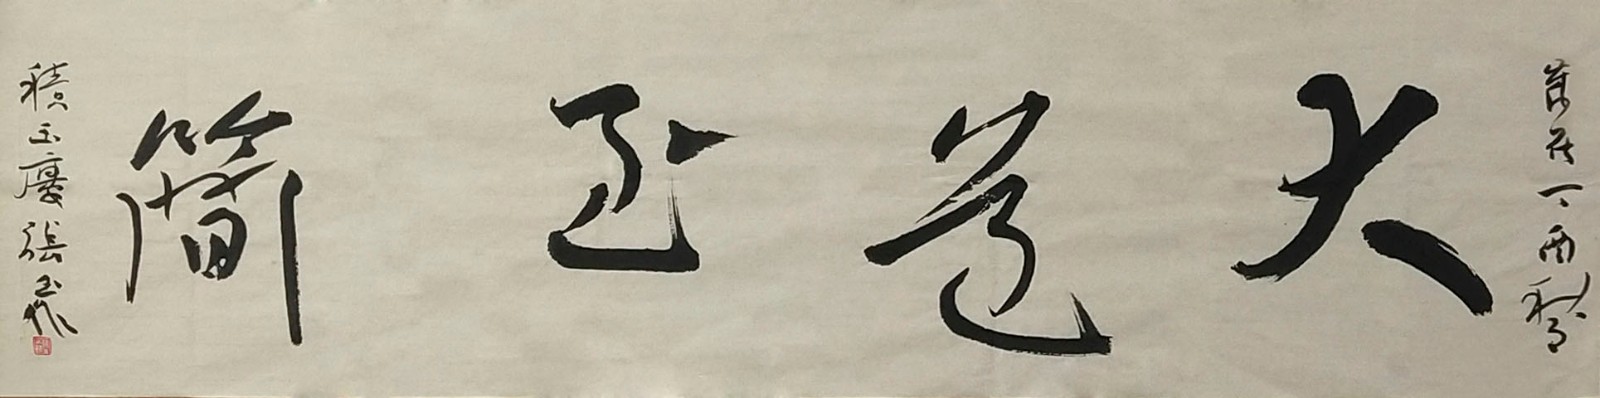 歲在丁酉秋月
大道至簡
積玉廬張玉